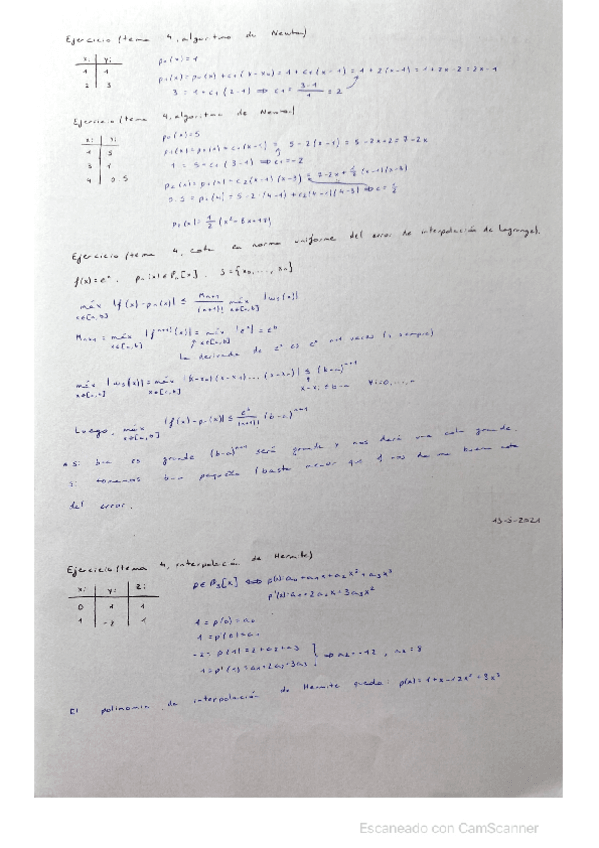 Ejercicio (tema 4, algoritmo de Newton)
xi yi
1 1
2 3
p0(x)=1
p1(x)=p0(x)+c1(x-x0)=1+c1(x-1)=1+2(x-1)=1+2x-2=2x-1
3=1+c1(2-1) ⇒ c1=3-1/1=2
Ejercicio (tema 4, algoritmo de Newton)
xi yi
1 5
3 1
4 0.5
p0(x)=5
p1(x)=p0(x)+c1(x-1)=5-2(x-1)=5-2x+2=7-2x
1=5+c1(3-1) ⇒ c1=-2
p2(x)=p1(x)+c2(x-1)(x-3)=7-2x+1/2(x-1)(x-3)
0.5=p2(4)=5-2(4-1)+c2(4-1)(4-3) ⇒ c=1/2
p2(x)=1/2(x²-8x+17)
Ejercicio (tema 4, cota en norma uniforme del error de interpolación de Lagrange).
f(x)=eˣ, pn(x)∈Pn[x], S={x0,...,xn}
máx x∈[a,b] |f(x)-pn(x)| ≤ Mn+1/(n+1)! máx x∈[a,b] |ws(x)|
Mn+1=máx x∈[a,b] |fⁿ⁺¹(x)|=máx x∈[a,b] |eˣ|=eᵇ
La derivada de eˣ es eˣ
máx x∈[a,b] |ws(x)|=máx x∈[a,b] |(x-x0)(x-x1)...(x-xn)| ≤ (b-a)ⁿ⁺¹
x-xi ≤ b-a ∀i=0,...,n
Luego, máx x∈[a,b] |f(x)-pn(x)| ≤ eᵇ/(n+1)! (b-a)ⁿ⁺¹
* Si b-a es grande (b-a)ⁿ⁺¹ será grande y nos dará una cota grande.
Si tomamos b-a pequeño (basta menor que 1) nos da una buena cota
del error.
13-5-2021
Ejercicio (tema 4, interpolación de Hermite)
xi yi zi
0 1 1
1 -2 1
p∈P3[x] ⇔ p(x)=a0+a1x+a2x²+a3x³
p'(x)=a1+2a2x+3a3x²
1=p(0)=a0
1=p'(0)=a1
-2=p(1)=2+a2+a3
1=p'(1)=a1+2a2+3a3 ⇒ a2=-12, a3=8
El polinomio de interpolación de Hermite queda: p(x)=1+x-12x²+8x³
Escaneado con CamScanner